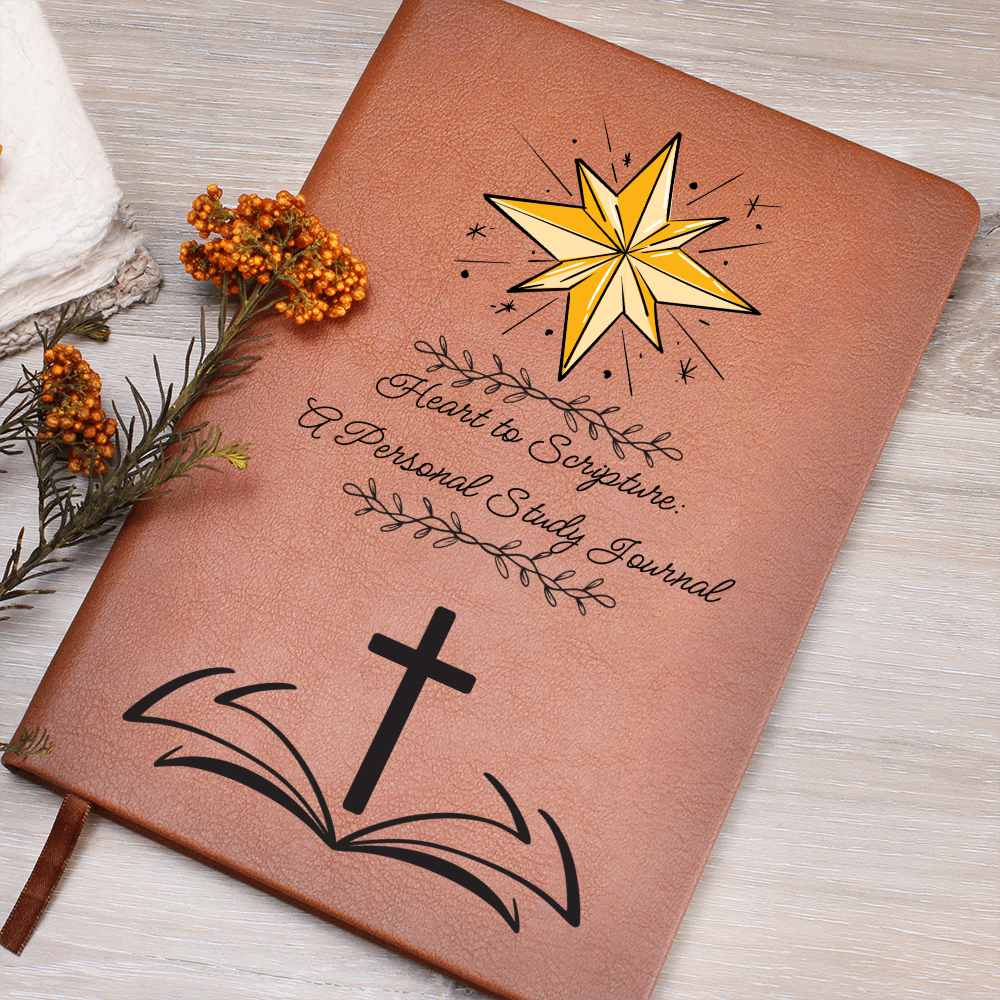 Heart to Scripture:
A Personal Study Journal